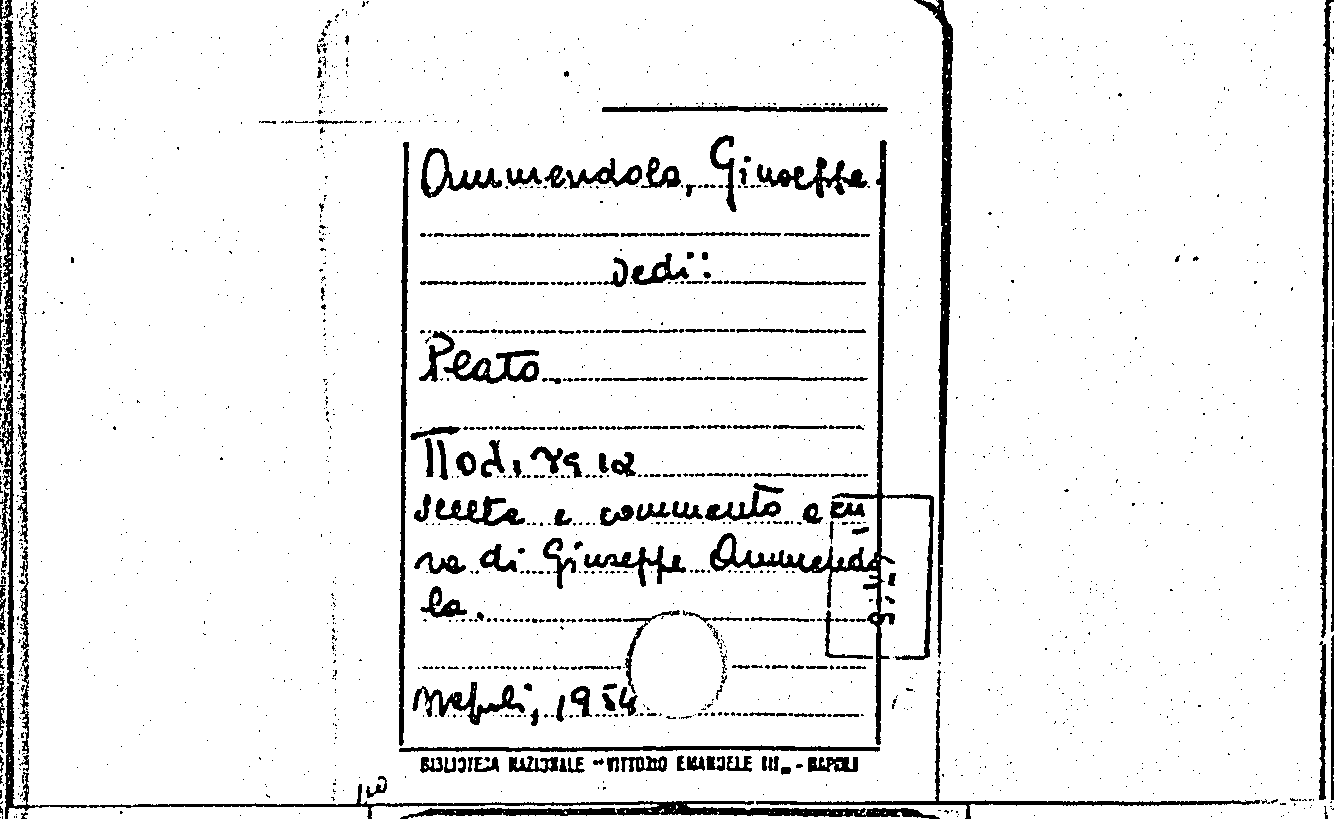 Ammendola, Giuseppe.
Vedi:
Plato.
Πολιτεία
scelta e commento a cu
ra di Giuseppe Ammendo
la.
Napoli, 1954
BIBLIOTECA NAZIONALE "VITTORIO EMANUELE III" - NAPOLI